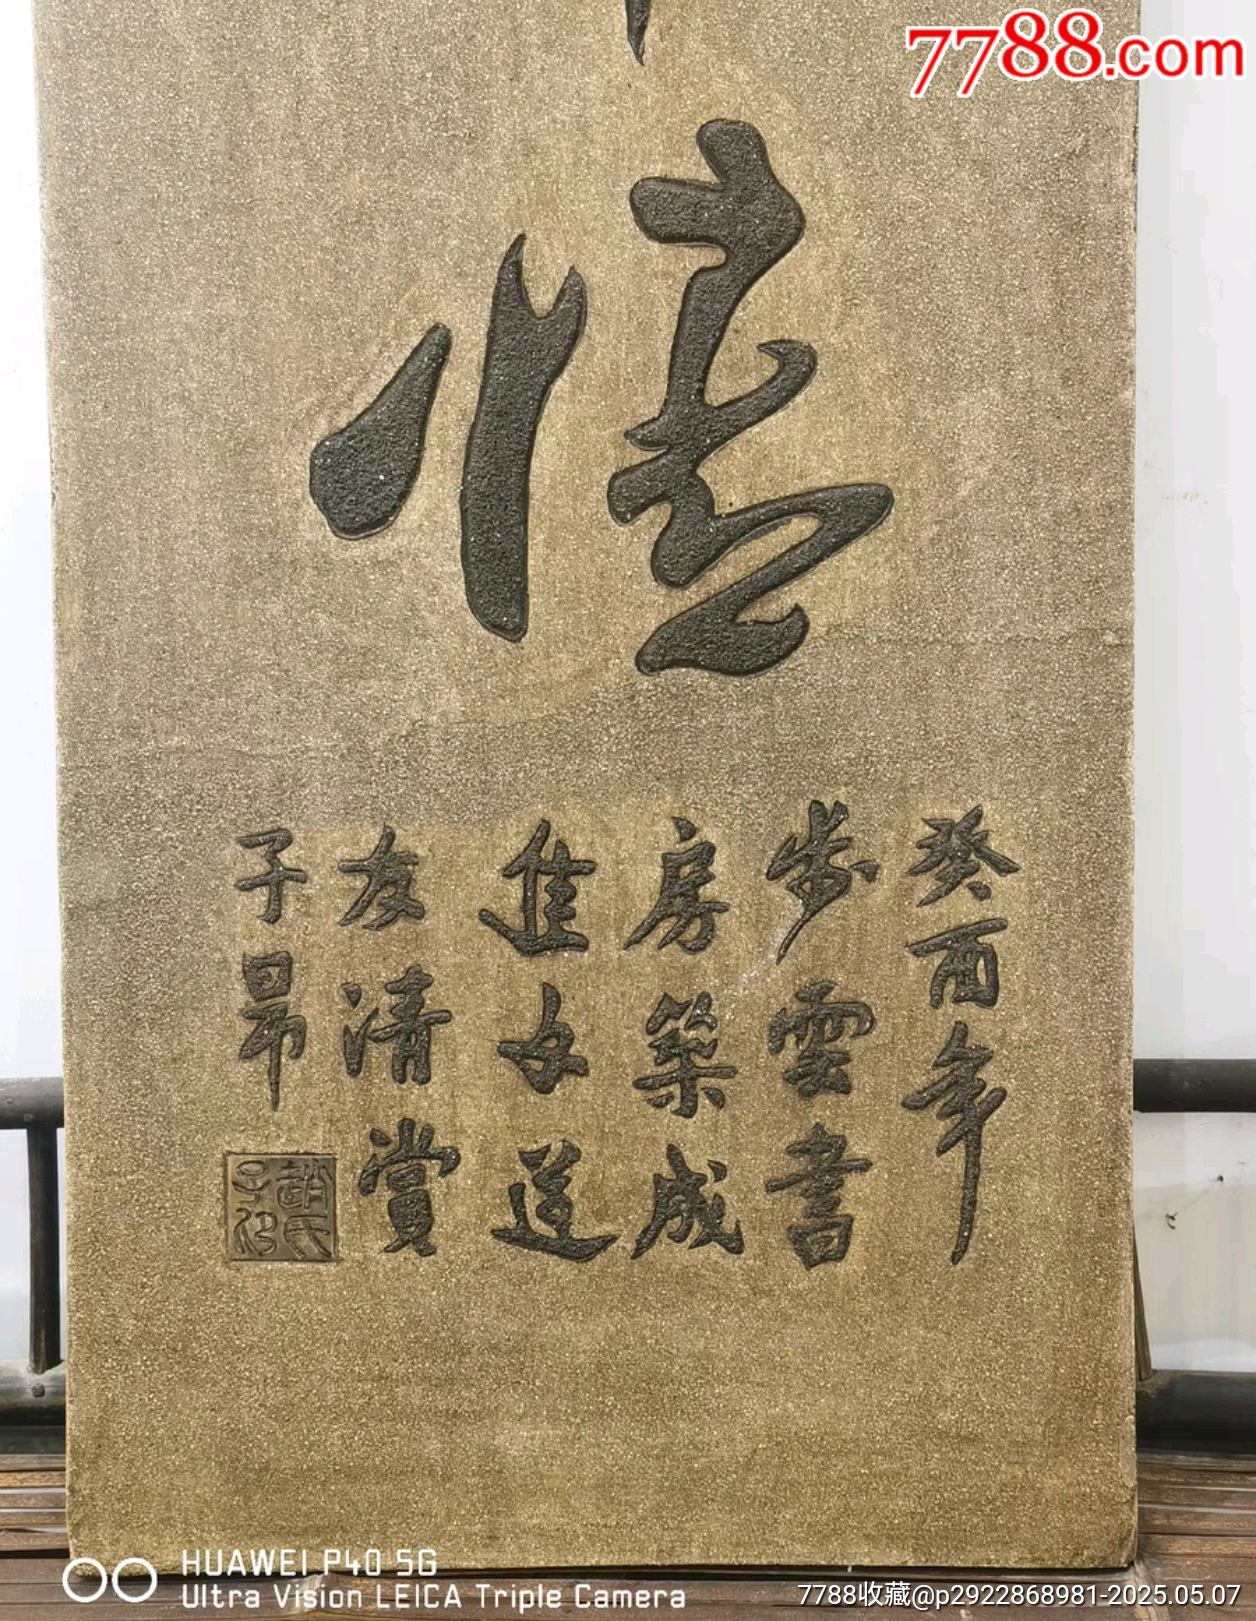 7788.com
癸酉年
步雲書
房築成
進女送
友清賞
子昂
趙氏
子印
HUAWEI P40 5G
Ultra Vision LEICA Triple Camera
7788收藏@p2922868981-2025.05.07